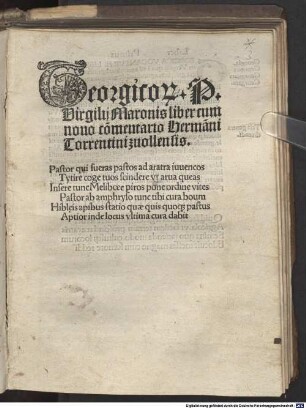 Georgicoꝝ. P.
Virgilij Maronis liber cum
nono cõmentario Hermãni
Torrentini zuollensis.
Pastor qui fueras pastos ad aratra iuuencos
Tytire coge tuos scindere vt arua queas
Insere nunc Melibœe piros pone ordine vites
Pastor ab amphryso nunc tibi cura boum
Hibleis apibus statio quæ quis quoqꝫ pastus
Aptior inde locus vltima cura dabit